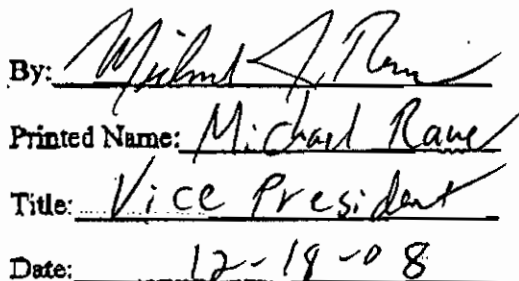 By: Michael J.
Printed Name: Michael
Title: Vice President
Date: 12-18-08